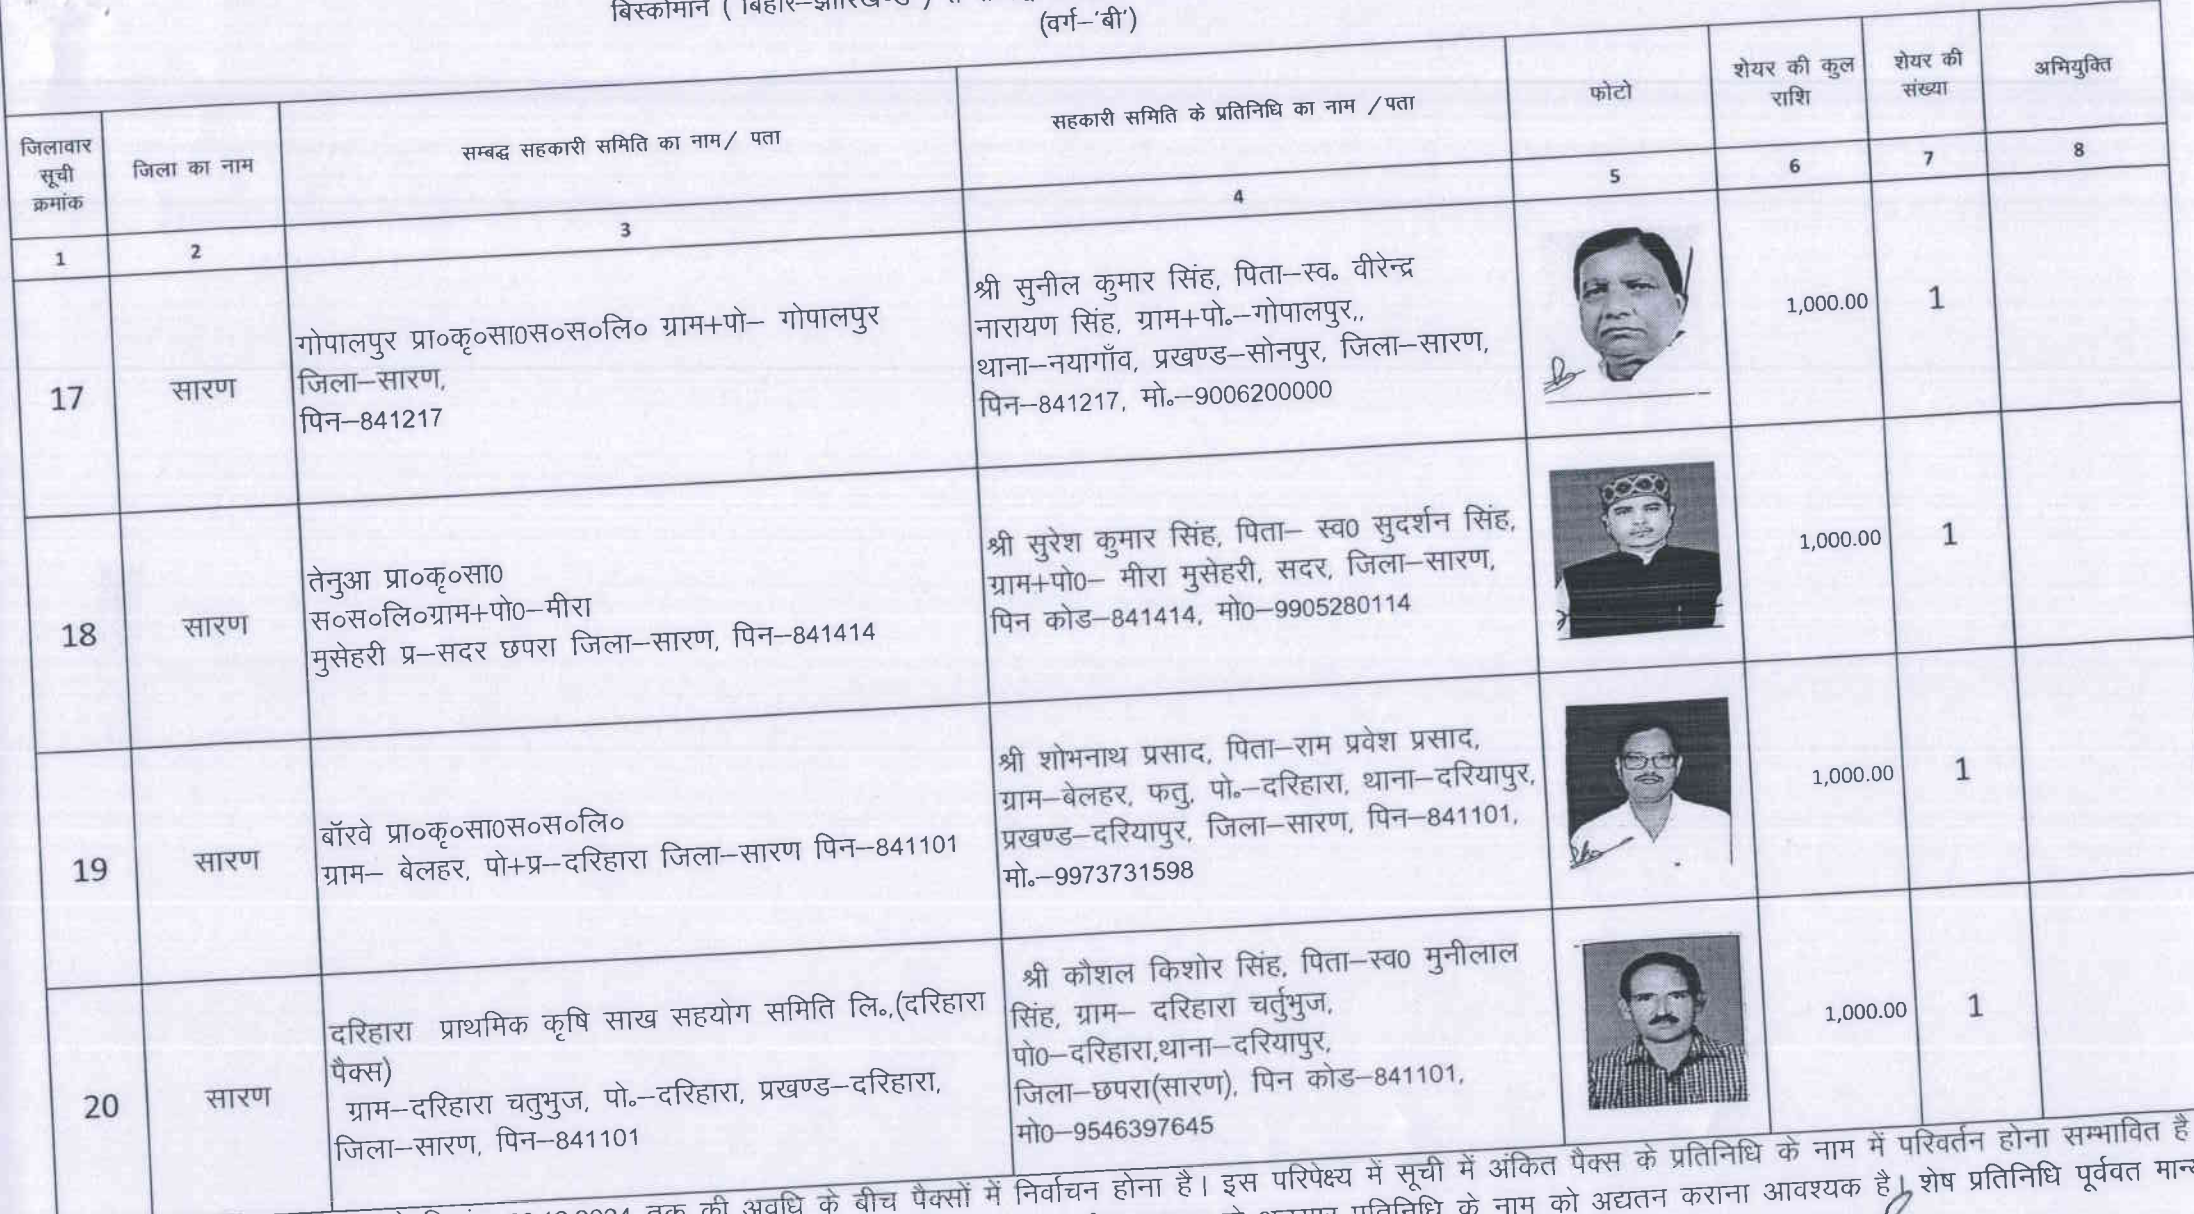 बिस्कोमान ( बिहार–झारखण्ड )
(वर्ग–'बी')
जिलावार
सूची
क्रमांक
जिला का नाम
सम्बद्ध सहकारी समिति का नाम/ पता
सहकारी समिति के प्रतिनिधि का नाम /पता
फोटो
शेयर की कुल
राशि
शेयर की
संख्या
अभियुक्ति
1
2
3
4
5
6
7
8
17
सारण
गोपालपुर प्रा०कृ०सा0स०स०लि० ग्राम+पो– गोपालपुर
जिला–सारण,
पिन–841217
श्री सुनील कुमार सिंह, पिता–स्व० वीरेन्द्र
नारायण सिंह, ग्राम+पो०–गोपालपुर,,
थाना–नयागाँव, प्रखण्ड–सोनपुर, जिला–सारण,
पिन–841217, मो०–9006200000
1,000.00
1
18
सारण
तेनुआ प्रा०कृ०सा0
स०स०लि०ग्राम+पो0–मीरा
मुसेहरी प्र–सदर छपरा जिला–सारण, पिन–841414
श्री सुरेश कुमार सिंह, पिता– स्व0 सुदर्शन सिंह,
ग्राम+पो0– मीरा मुसेहरी, सदर, जिला–सारण,
पिन कोड–841414, मो0–9905280114
1,000.00
1
19
सारण
बॉरवे प्रा०कृ०सा0स०स०लि०
ग्राम– बेलहर, पो+प्र–दरिहारा जिला–सारण पिन–841101
श्री शोभनाथ प्रसाद, पिता–राम प्रवेश प्रसाद,
ग्राम–बेलहर, फतु, पो०–दरिहारा, थाना–दरियापुर,
प्रखण्ड–दरियापुर, जिला–सारण, पिन–841101,
मो०–9973731598
1,000.00
1
20
सारण
दरिहारा प्राथमिक कृषि साख सहयोग समिति लि०,(दरिहारा
पैक्स)
ग्राम–दरिहारा चतुभुज, पो०–दरिहारा, प्रखण्ड–दरिहारा,
जिला–सारण, पिन–841101
श्री कौशल किशोर सिंह, पिता–स्व0 मुनीलाल
सिंह, ग्राम– दरिहारा चर्तुभुज,
पो0–दरिहारा,थाना–दरियापुर,
जिला–छपरा(सारण), पिन कोड–841101,
मो0–9546397645
1,000.00
1
तक की अवधि के बीच पैक्सों में निर्वाचन होना है। इस परिपेक्ष्य में सूची में अंकित पैक्स के प्रतिनिधि के नाम में परिवर्तन होना सम्भावित है
प्रतिनिधि के नाम को अद्यतन कराना आवश्यक है। शेष प्रतिनिधि पूर्ववत